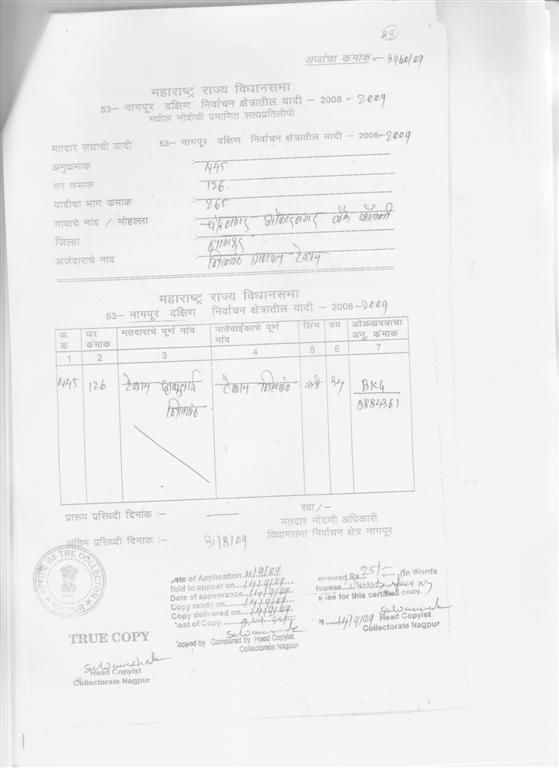 अर्जाचा कंमाक:- 3960/09
महाराष्ट्र राज्य विधानसभा
53- नागपूर दक्षिण निर्वाचन क्षेत्रातील यादी - 2008 - 2009
मधील नोंदीची प्रमाणित सत्यप्रतिलीपी
मतदार संघाची यादी 53- नागपूर दक्षिण निर्वाचन क्षेत्रातील यादी - 2008-2009
अनुकंमाक 445
घर कंमाक 126
यादीचा भाग कंमाक 265
गावाचे नांव / मोहल्ला
जिल्हा नागपूर
अर्जदाराचे नांव
महाराष्ट्र राज्य विधानसभा
53- नागपूर दक्षिण निर्वाचन क्षेत्रातील यादी - 2008-2009
अ. कं घर कंमाक मतदाराचे पूर्ण नांव नातेवाईकाचे पूर्ण नांव लिंग वय ओळखपत्राचा अनु. कंमाक
1 2 3 4 5 6 7
445 126 टेकाम टेकाम स्त्री 37 BKG
0884361
प्रारूप प्रसिध्दी दिनांक :-
स्वा/-
मतदार नोंदणी अधिकारी
अंतिम प्रसिध्दी दिनाक :- 31/8/09 विधानसभा निर्वाचन क्षेत्र नागपूर
OFFICE OF THE COLLECTOR
NAGPUR
Date of Application 11/9/09
Told to appear on 14/9/09
Date of appearance 14/9/09
Copy ready on 14/9/09
Copy delivered on 14/9/09
Cost of Copy
Copied by Compared by Head Copyist
Collectorate Nagpur
Received Rs. 25/- (In Words
Rupees
as fee for this certified copy.
14/9/09 Head Copyist
Collectorate Nagpur
TRUE COPY
Head Copyist
Collectorate Nagpur